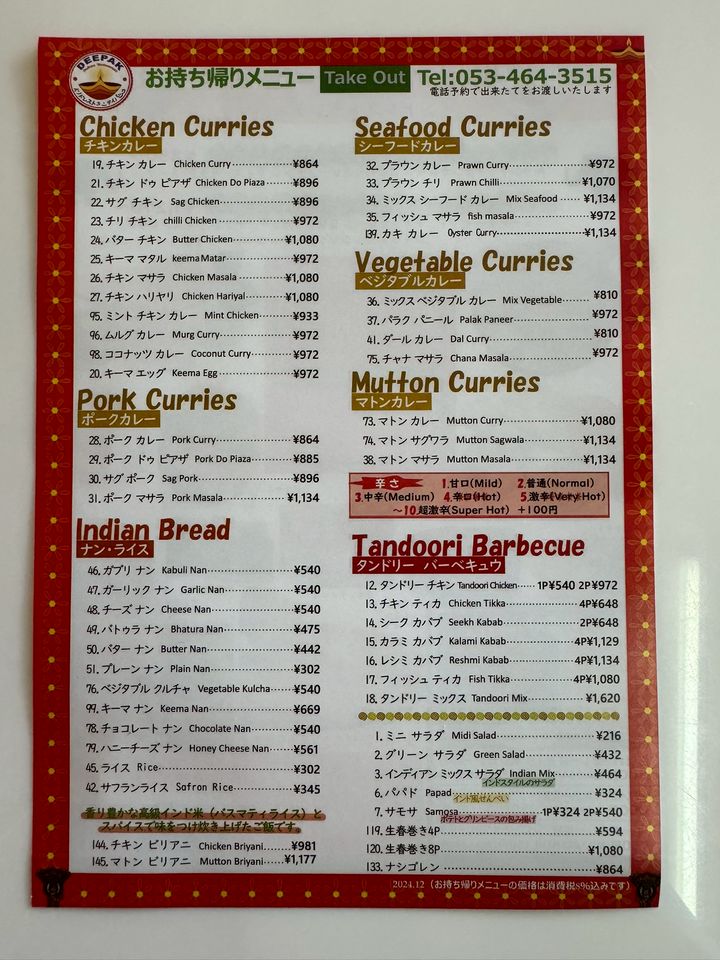 DEEPAK
お持ち帰りメニュー Take Out Tel:053-464-3515
電話予約で出来たてをお渡しいたします
Chicken Curries
チキンカレー
19. チキン カレー Chicken Curry ¥864
21. チキン ドゥ ピアザ Chicken Do Piaza ¥896
22. サグ チキン Sag Chicken ¥896
23. チリ チキン chilli Chicken ¥972
24. バター チキン Butter Chicken ¥1,080
25. キーマ マタル keema Matar ¥972
26. チキン マサラ Chicken Masala ¥1,080
27. チキン ハリヤリ Chicken Hariyal ¥1,080
95. ミント チキン カレー Mint Chicken ¥933
96. ムルグ カレー Murg Curry ¥972
98. ココナッツ カレー Coconut Curry ¥972
20. キーマ エッグ Keema Egg ¥972
Pork Curries
ポークカレー
28. ポーク カレー Pork Curry ¥864
29. ポーク ドゥ ピアザ Pork Do Piaza ¥885
30. サグ ポーク Sag Pork ¥896
31. ポーク マサラ Pork Masala ¥1,134
Indian Bread
ナン・ライス
46. カブリ ナン Kabuli Nan ¥540
47. ガーリック ナン Garlic Nan ¥540
48. チーズ ナン Cheese Nan ¥540
49. バトゥラ ナン Bhatura Nan ¥475
50. バター ナン Butter Nan ¥442
51. プレーン ナン Plain Nan ¥302
76. ベジタブル クルチャ Vegetable Kulcha ¥540
99. キーマ ナン Keema Nan ¥669
78. チョコレート ナン Chocolate Nan ¥540
79. ハニーチーズ ナン Honey Cheese Nan ¥561
45. ライス Rice ¥302
42. サフランライス Safron Rice ¥345
香り豊かな高級インド米(バスマティライス)と
スパイスで味をつけ炊き上げたご飯です。
144. チキン ビリアニ Chicken Briyani ¥981
145. マトン ビリアニ Mutton Briyani ¥1,177
Seafood Curries
シーフードカレー
32. プラウン カレー Prawn Curry ¥972
33. プラウン チリ Prawn Chilli ¥1,070
34. ミックス シーフード カレー Mix Seafood ¥1,134
35. フィッシュ マサラ fish masala ¥972
139. カキ カレー Oyster Curry ¥1,134
Vegetable Curries
ベジタブルカレー
36. ミックス ベジタブル カレー Mix Vegetable ¥810
37. パラク パニール Palak Paneer ¥972
41. ダール カレー Dal Curry ¥810
75. チャナ マサラ Chana Masala ¥972
Mutton Curries
マトンカレー
73. マトン カレー Mutton Curry ¥1,080
74. マトン サグワラ Mutton Sagwala ¥1,134
38. マトン マサラ Mutton Masala ¥1,134
辛さ 1.甘口(Mild) 2.普通(Normal)
3.中辛(Medium) 4.辛口(Hot) 5.激辛(Very Hot)
～10.超激辛(Super Hot) +100円
Tandoori Barbecue
タンドリー バーベキュウ
12. タンドリー チキン Tandoori Chicken 1P¥540 2P¥972
13. チキン ティカ Chicken Tikka 4P¥648
14. シーク カバブ Seekh Kabab 2P¥648
15. カラミ カバブ Kalami Kabab 4P¥1,129
16. レシミ カバブ Reshmi Kabab 4P¥1,134
17. フィッシュ ティカ Fish Tikka 4P¥1,080
18. タンドリー ミックス Tandoori Mix ¥1,620
1. ミニ サラダ Midi Salad ¥216
2. グリーン サラダ Green Salad ¥432
3. インディアン ミックス サラダ Indian Mix ¥464
インドスタイルのサラダ
6. パパド Papad ¥324
インド風せんべい
7. サモサ Samosa 1P¥324 2P¥540
ポテトとグリンピースの包み揚げ
119. 生春巻き4P ¥594
120. 生春巻き8P ¥1,080
133. ナシゴレン ¥864
2024.12(お持ち帰りメニューの価格は消費税8%込みです)